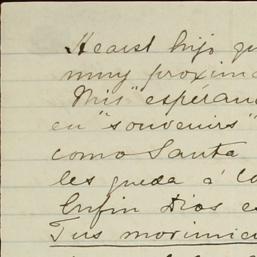 Hearst hijo qu
muy proxim
Mis" espéran
en "souvenirs"
como Santa
les queda á lo
Enfin Dios es
Tus morimici